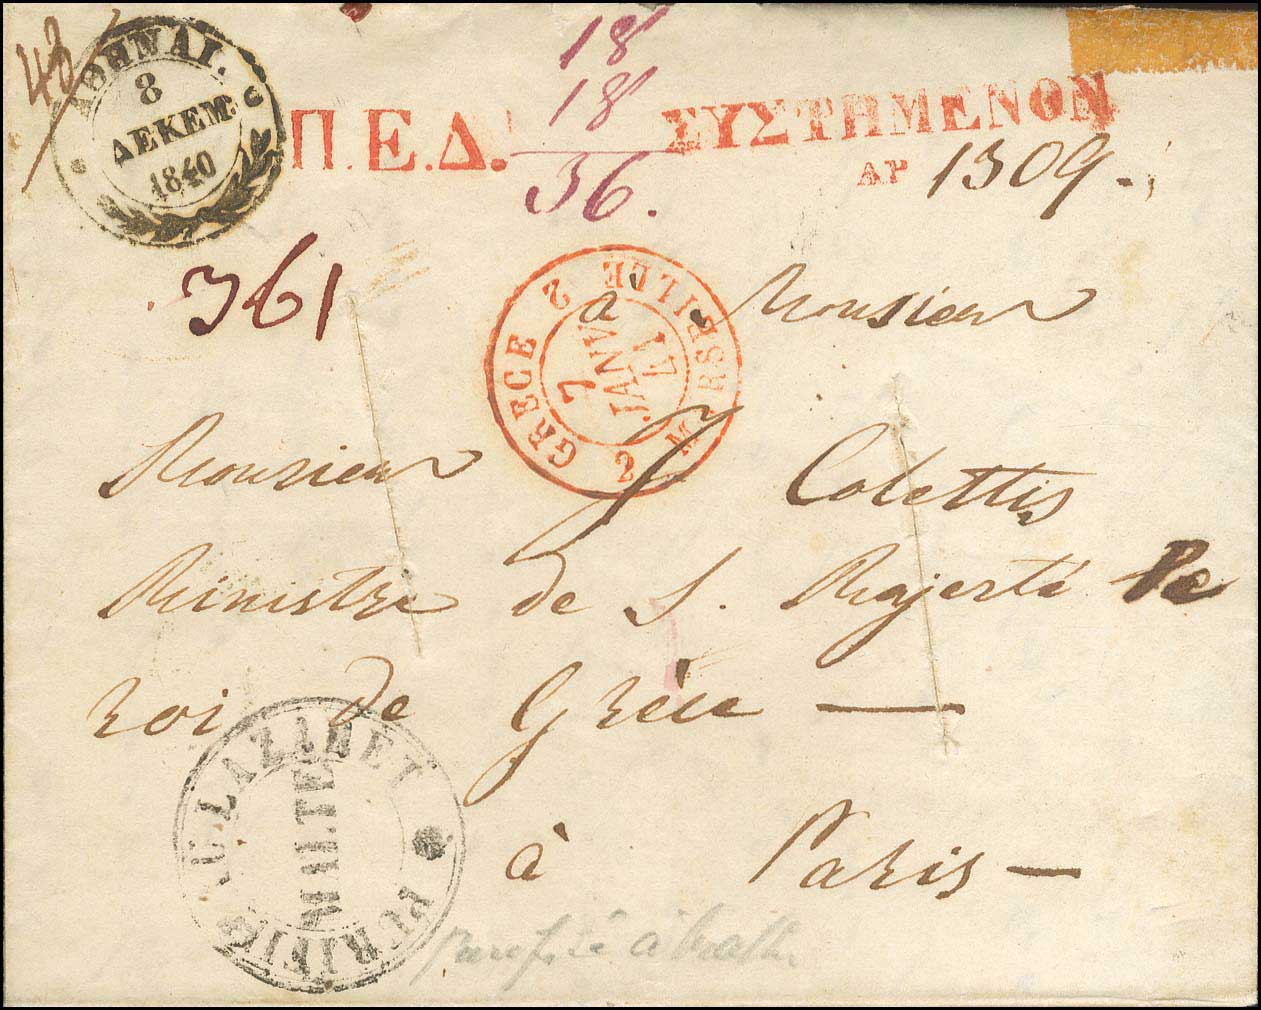 48
ΑΘΗΝΑΙ.
8
ΔΕΚΕΜ.
1840
Π.Ε.Δ.
18
18
36.
ΣΥΣΤΗΜΕΝΟΝ
ΑΡ 1309.
361
2 GRECE 2 MARSEILLE
7
JANV
41
à Monsieur
Monsieur J Colettis
Ministre de S. Majesté le
roi de Grèce —
à Paris —
LAZARET
MALTE
PURIFIE
purifié à Malte